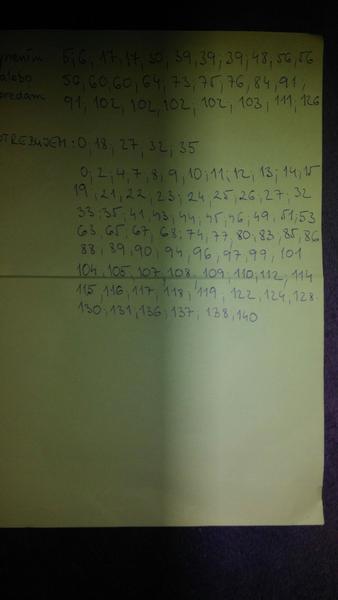 5,6, 17,17,30,39,39,39,48,56,56
alebo 50,60,60,64,73,75,76,84,91,
predám 91,102,102,102,102,103,111,126
OTREBUJEM: 0,18,27,32,35
0,2,4,7,8,9,10,11,12,13,14,15
19,21,22,23,24,25,26,27,32
33,35,41,43,44,45,46,49,51,53
63,65,67,68,74,77,80,83,85,86
88,89,90,94,96,97,99,101
104,105,107,108,109,110,112,114
115,116,117,118,119,122,124,128
130,131,136,137,138,140